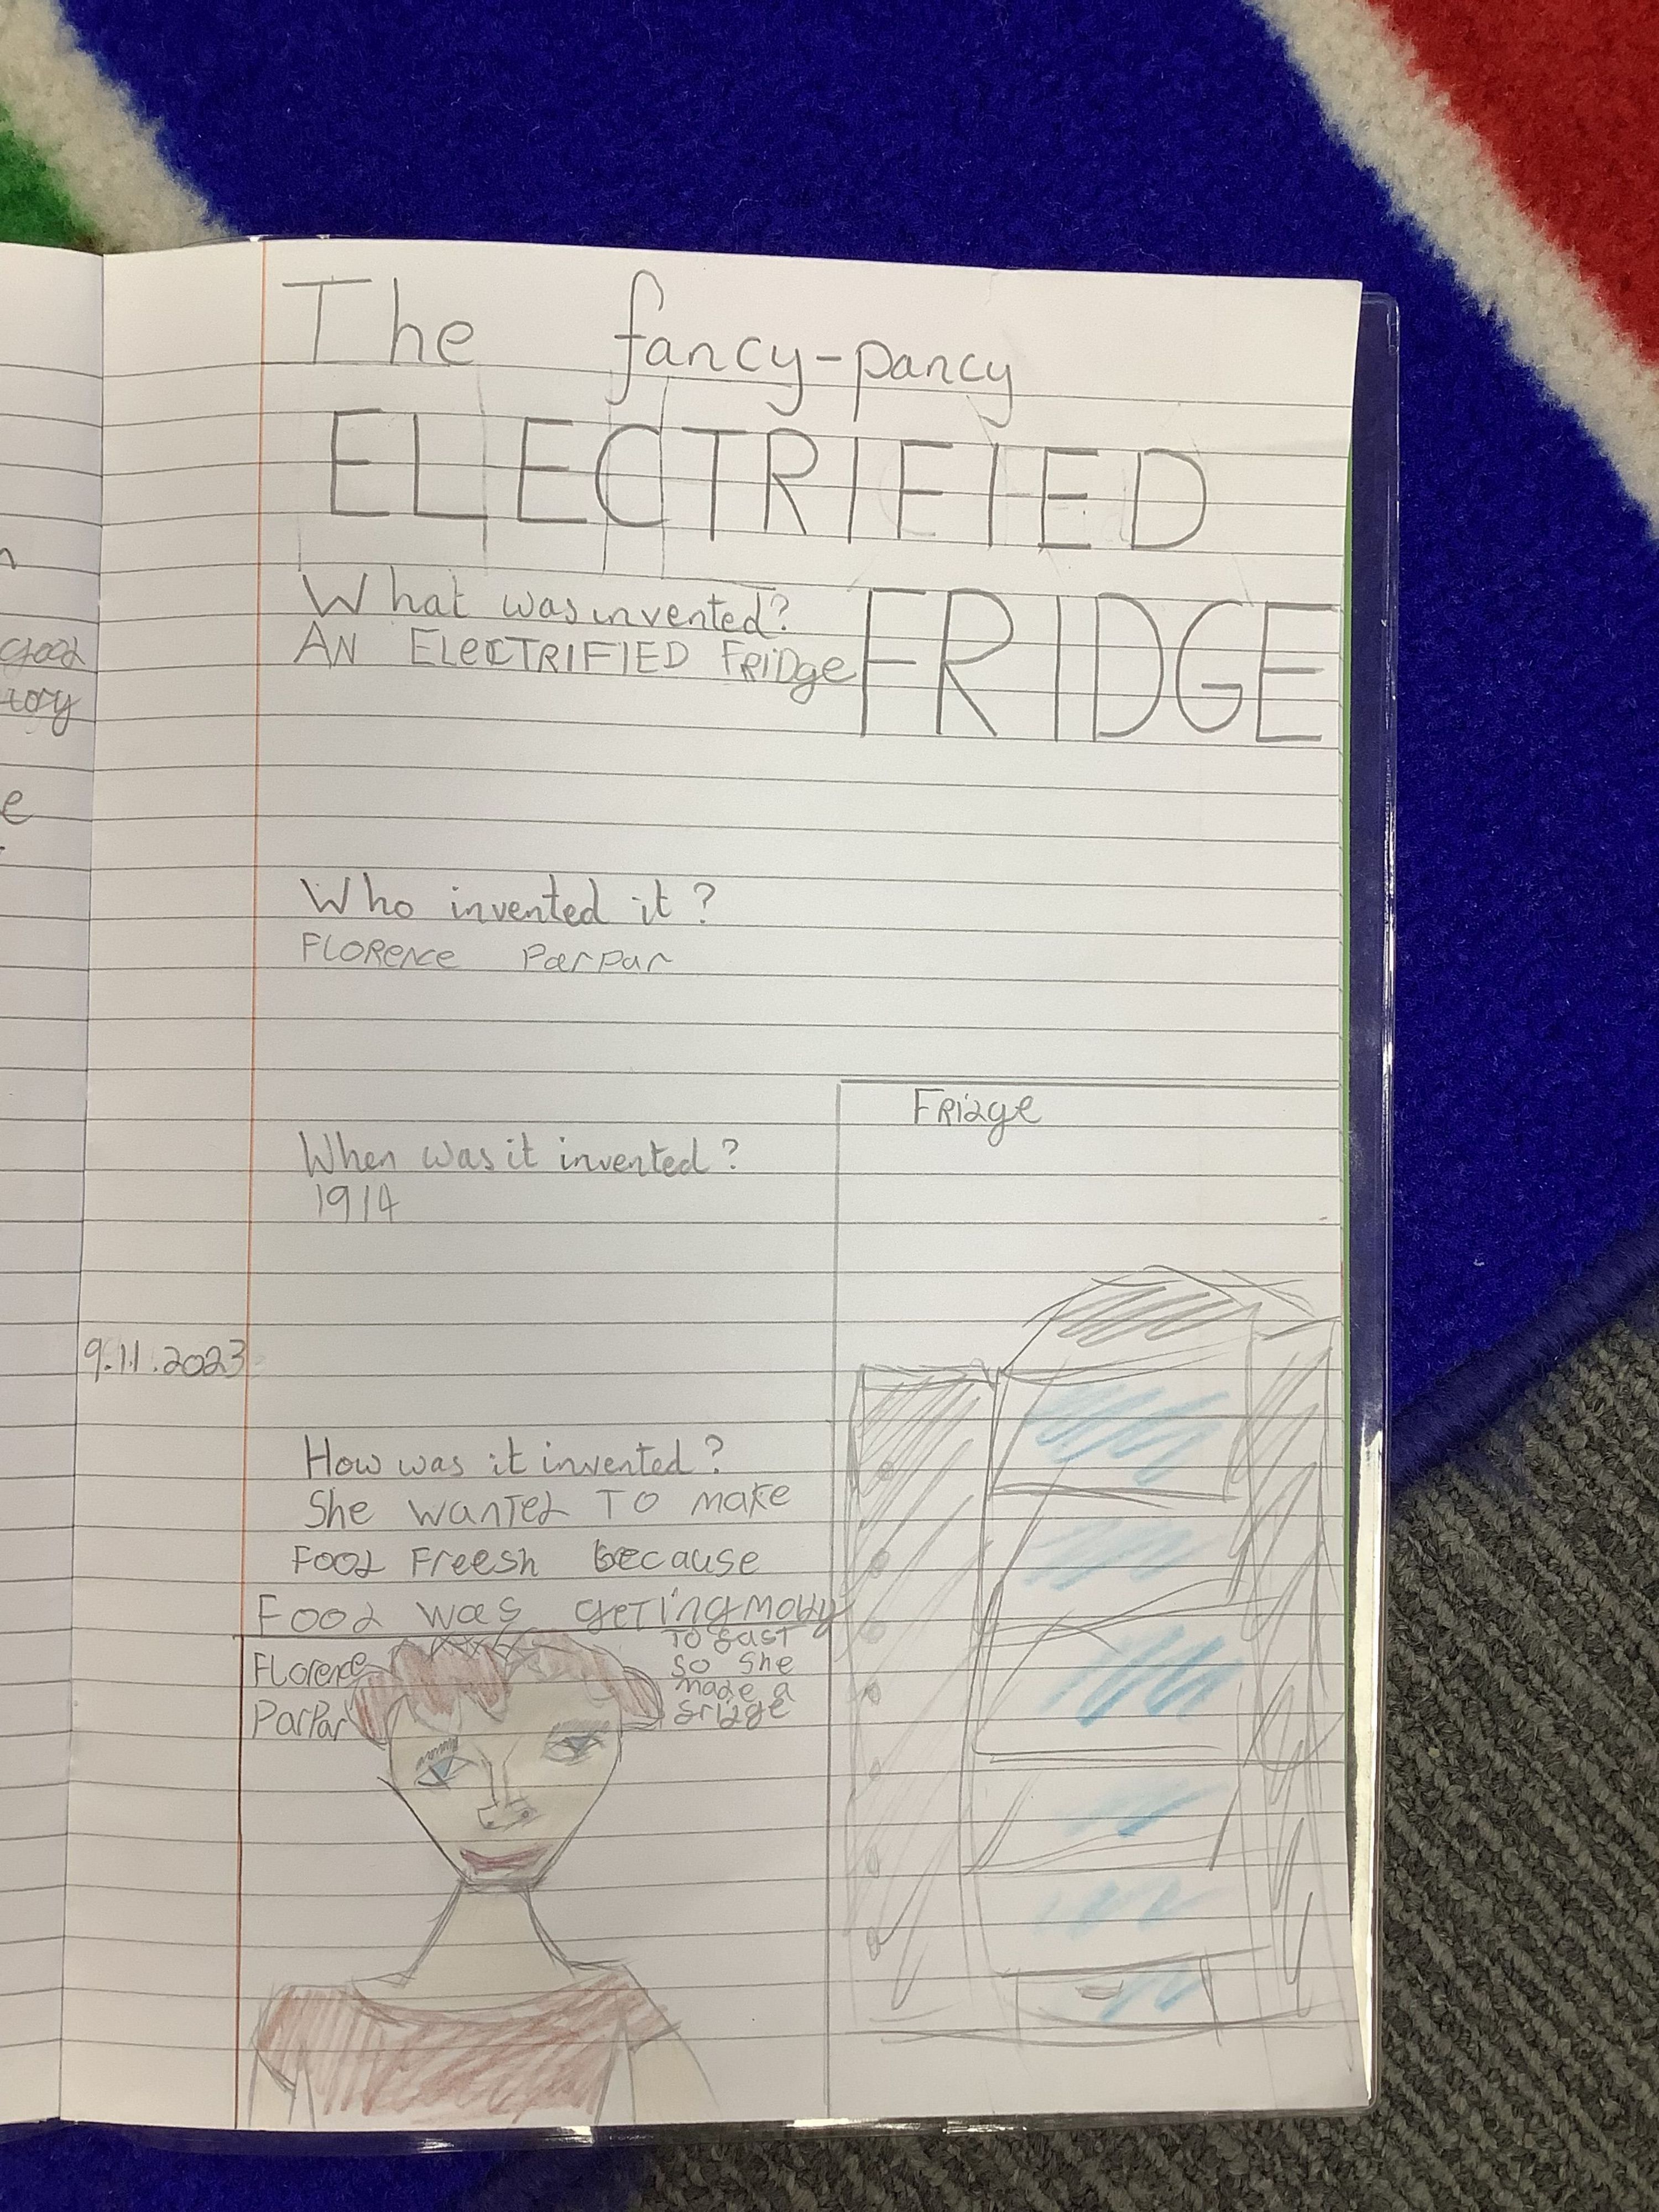 The fancy-pancy
ELECTRIFIED
FRIDGE
What was invented?
AN ElecTRIFIED FRiDge
Who invented it?
FLORence Parpar
When was it invented?
1914
Fridge
9.11.2023
How was it invented?
She wanted TO make
Food Freesh because
Food was geTing moldy
To fast
so she
made a
fridge
Florence
ParPar
good
tory
e